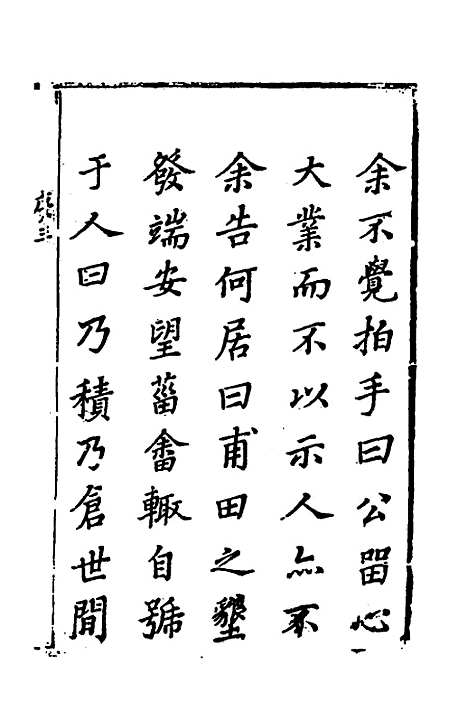 余不覺拍手曰公畱心
大業而不以示人亦不
余告何居曰甫田之墾
發端安望菑畬輙自號
于人曰乃積乃倉世間
序三